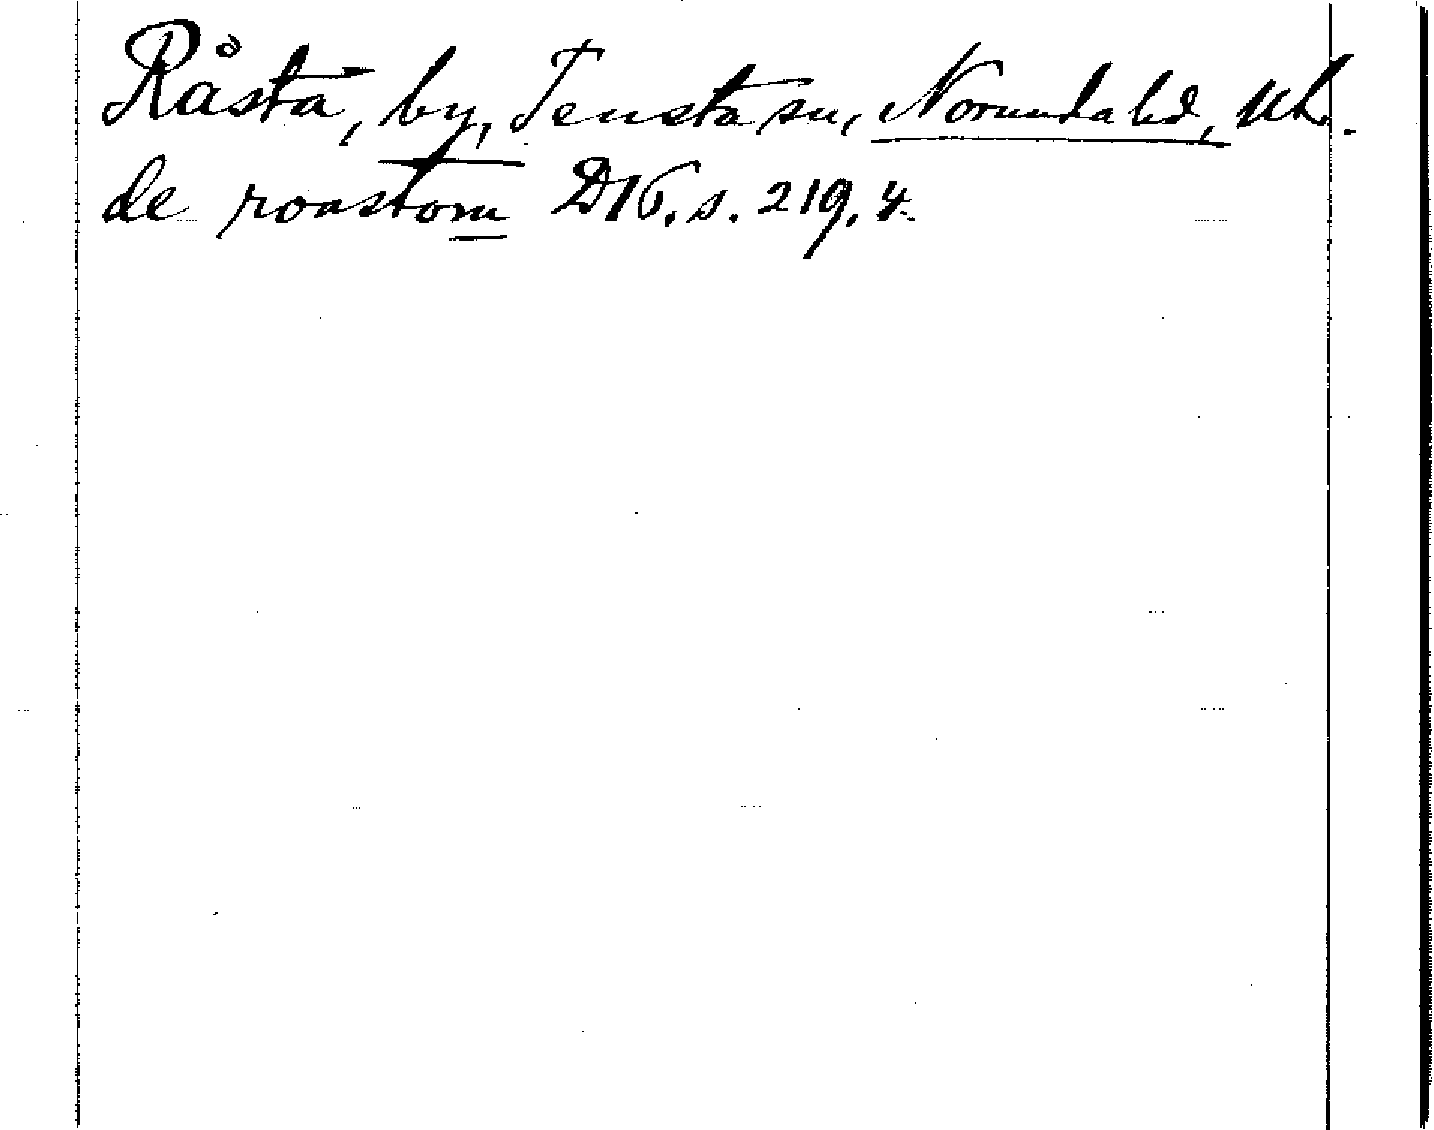 Råsta, by, Tensta sn, Norunda hd, Upl.
de roastom D16. s. 219. 4.